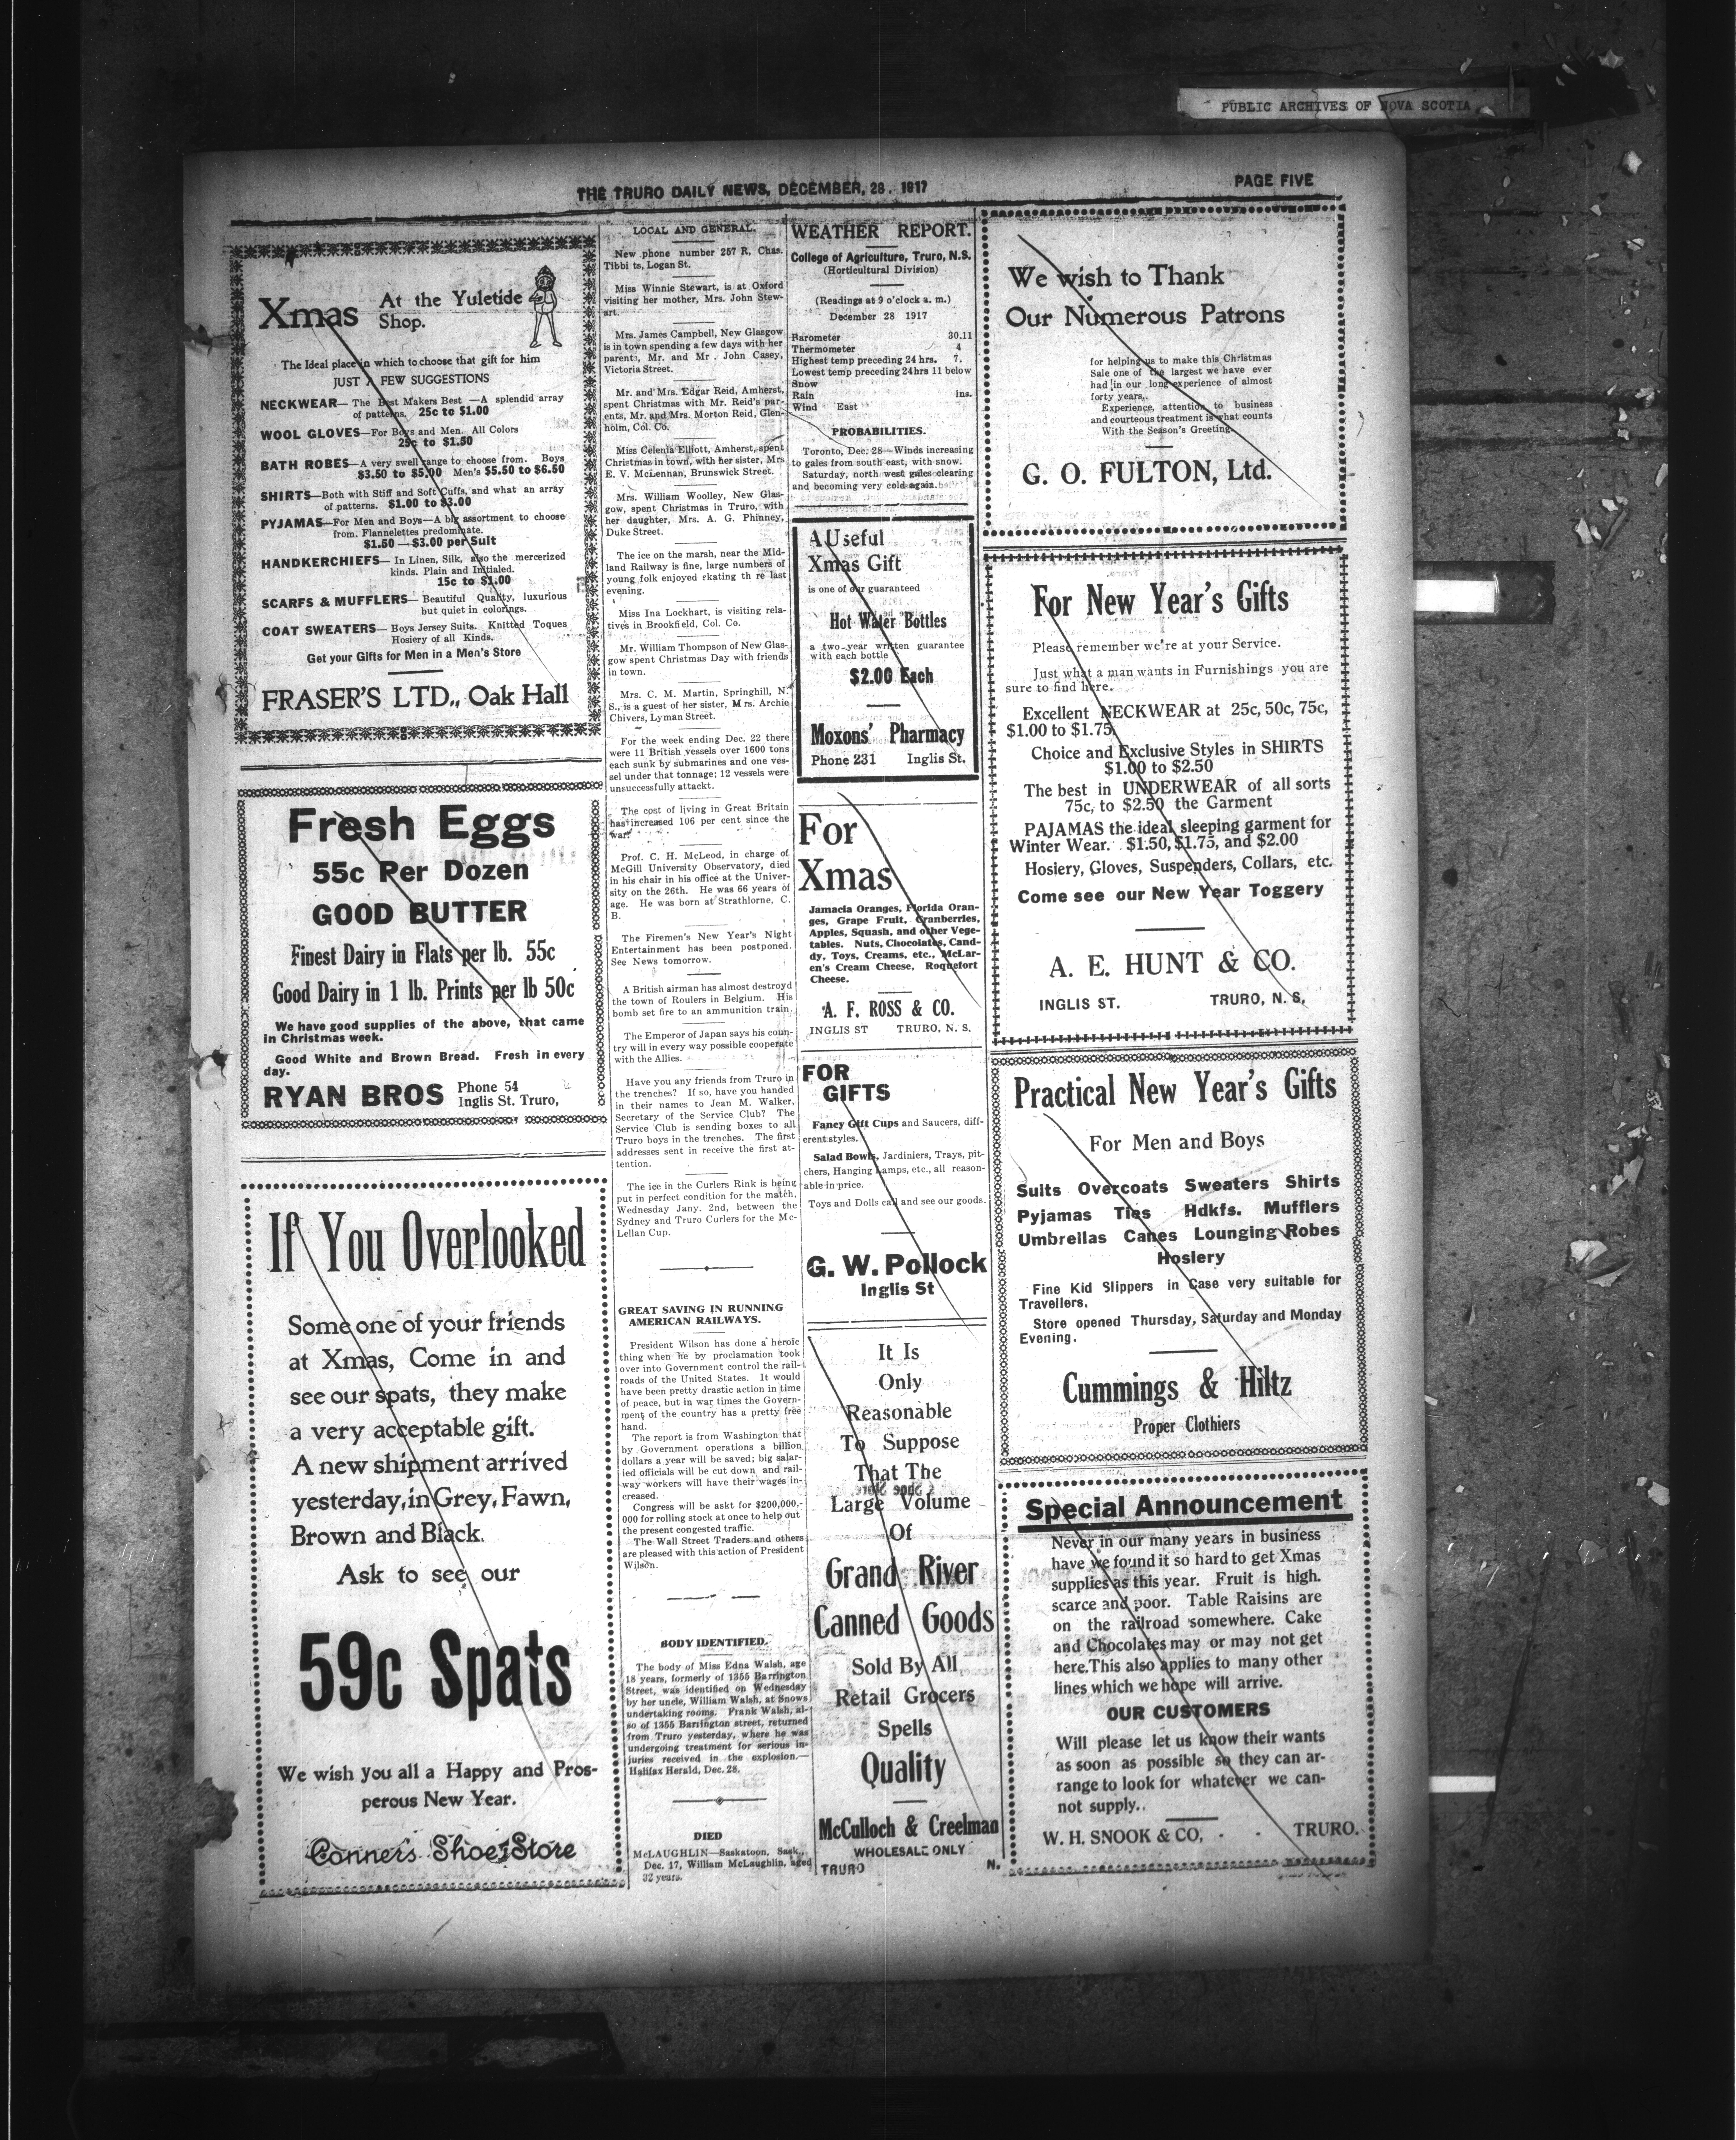 PUBLIC ARCHIVES OF NOVA SCOTIA
THE TRURO DAILY NEWS, DECEMBER, 28. 1917
PAGE FIVE
Xmas
At the Yuletide
Shop.
The Ideal place in which to choose that gift for him
JUST A FEW SUGGESTIONS
NECKWEAR— The Best Makers Best —A splendid array
of patterns. 25c to $1.00
WOOL GLOVES—For Boys and Men. All Colors
25c to $1.50
BATH ROBES—A very swell range to choose from. Boys
$3.50 to $5.00 Men's $5.50 to $6.50
SHIRTS—Both with Stiff and Soft Cuffs, and what an array
of patterns. $1.00 to $3.00
PYJAMAS—For Men and Boys—A big assortment to choose
from. Flannelettes predominate.
$1.50—$3.00 per Suit
HANDKERCHIEFS— In Linen, Silk, also the mercerized
kinds. Plain and Initialed.
15c to $1.00
SCARFS & MUFFLERS— Beautiful Quality, luxurious
but quiet in colorings.
COAT SWEATERS— Boys Jersey Suits. Knitted Toques
Hosiery of all Kinds.
Get your Gifts for Men in a Men's Store
FRASER'S LTD., Oak Hall
Fresh Eggs
55c Per Dozen
GOOD BUTTER
Finest Dairy in Flats per lb. 55c
Good Dairy in 1 lb. Prints per lb 50c
We have good supplies of the above, that came
in Christmas week.
Good White and Brown Bread. Fresh in every
day.
RYAN BROS
Phone 54
Inglis St. Truro,
If You Overlooked
Some one of your friends
at Xmas, Come in and
see our spats, they make
a very acceptable gift.
A new shipment arrived
yesterday, in Grey, Fawn,
Brown and Black.
Ask to see our
59c Spats
We wish you all a Happy and Pros-
perous New Year.
Conner's Shoe Store
LOCAL AND GENERAL.
New phone number 257 R, Chas.
Tibbi ts, Logan St.
Miss Winnie Stewart, is at Oxford
visiting her mother, Mrs. John Stew-
art.
Mrs. James Campbell, New Glasgow
is in town spending a few days with her
parents, Mr. and Mr . John Casey,
Victoria Street.
Mr. and Mrs. Edgar Reid, Amherst,
spent Christmas with Mr. Reid's par-
ents, Mr. and Mrs. Morton Reid, Glen-
holm, Col. Co.
Miss Celenia Elliott, Amherst, spent
Christmas in town, with her sister, Mrs
E. V. McLennan, Brunswick Street.
Mrs. William Woolley, New Glas-
gow, spent Christmas in Truro, with
her daughter, Mrs. A. G. Phinney,
Duke Street.
The ice on the marsh, near the Mid-
land Railway is fine, large numbers of
young folk enjoyed skating th re last
evening.
Miss Ina Lockhart, is visiting rela-
tives in Brookfield, Col. Co.
Mr. William Thompson of New Glas-
gow spent Christmas Day with friends
in town.
Mrs. C. M. Martin, Springhill, N.
S., is a guest of her sister, Mrs. Archie
Chivers, Lyman Street.
For the week ending Dec. 22 there
were 11 British vessels over 1600 tons
each sunk by submarines and one ves-
sel under that tonnage; 12 vessels were
unsuccessfully attackt.
The cost of living in Great Britain
has increased 106 per cent since the
war.
Prof. C. H. McLeod, in charge of
McGill University Observatory, died
in his chair in his office at the Univer-
sity on the 26th. He was 66 years of
age. He was born at Strathlorne, C.
B.
The Firemen's New Year's Night
Entertainment has been postponed.
See News tomorrow.
A British airman has almost destroyd
the town of Roulers in Belgium. His
bomb set fire to an ammunition train.
The Emperor of Japan says his coun-
try will in every way possible cooperate
with the Allies.
Have you any friends from Truro in
the trenches? If so, have you handed
in their names to Jean M. Walker,
Secretary of the Service Club? The
Service Club is sending boxes to all
Truro boys in the trenches. The first
addresses sent in receive the first at-
tention.
The ice in the Curlers Rink is being
put in perfect condition for the match,
Wednesday Jany. 2nd, between the
Sydney and Truro Curlers for the Mc-
Lellan Cup.
GREAT SAVING IN RUNNING
AMERICAN RAILWAYS.
President Wilson has done a heroic
thing when he by proclamation took
over into Government control the rail-
roads of the United States. It would
have been pretty drastic action in time
of peace, but in war times the Govern-
ment of the country has a pretty free
hand.
The report is from Washington that
by Government operations a billion
dollars a year will be saved; big salar-
ied officials will be cut down and rail-
way workers will have their wages in-
creased.
Congress will be askt for $200,000,-
000 for rolling stock at once to help out
the present congested traffic.
The Wall Street Traders and others
are pleased with this action of President
Wilson.
BODY IDENTIFIED.
The body of Miss Edna Walsh, age
18 years, formerly of 1355 Barrington
Street, was identified on Wednesday
by her uncle, William Walsh, at Snows
undertaking rooms. Frank Walsh, al-
so of 1355 Barrington street, returned
from Truro yesterday, where he was
undergoing treatment for serious in-
juries received in the explosion.—
Halifax Herald, Dec. 28.
DIED
McLAUGHLIN—Saskatoon, Sask.,
Dec. 17, William McLaughlin, aged
32 years.
WEATHER REPORT.
College of Agriculture, Truro, N.S.
(Horticultural Division)
(Readings at 9 o'clock a. m.)
December 28 1917
Barometer 30.11
Thermometer 4
Highest temp preceding 24 hrs. 7.
Lowest temp preceding 24hrs 11 below
Snow
Rain ins.
Wind East
PROBABILITIES.
Toronto, Dec. 28—Winds increasing
to gales from south east, with snow.
Saturday, north west gales clearing
and becoming very cold again.
A Useful
Xmas Gift
is one of our guaranteed
Hot Water Bottles
a two-year written guarantee
with each bottle
$2.00 Each
Moxons' Pharmacy
Phone 231 Inglis St.
For
Xmas
Jamacia Oranges, Florida Oran-
ges, Grape Fruit, Cranberries,
Apples, Squash, and other Vege-
tables. Nuts, Chocolates, Cand-
dy, Toys, Creams, etc., McLar-
en's Cream Cheese, Roquefort
Cheese.
A. F. ROSS & CO.
INGLIS ST TRURO, N. S.
FOR
GIFTS
Fancy Gift Cups and Saucers, diff-
erent styles.
Salad Bowls, Jardiniers, Trays, pit-
chers, Hanging Lamps, etc., all reason-
able in price.
Toys and Dolls call and see our goods.
G. W. Pollock
Inglis St
It Is
Only
Reasonable
To Suppose
That The
Large Volume
Of
Grand River
Canned Goods
Sold By All
Retail Grocers
Spells
Quality
McCulloch & Creelman
WHOLESALE ONLY
TRURO N.
We wish to Thank
Our Numerous Patrons
for helping us to make this Christmas
Sale one of the largest we have ever
had in our long experience of almost
forty years.
Experience, attention to business
and courteous treatment is what counts
With the Season's Greeting
G. O. FULTON, Ltd.
For New Year's Gifts
Please remember we're at your Service.
Just what a man wants in Furnishings you are
sure to find here.
Excellent NECKWEAR at 25c, 50c, 75c,
$1.00 to $1.75.
Choice and Exclusive Styles in SHIRTS
$1.00 to $2.50
The best in UNDERWEAR of all sorts
75c, to $2.50 the Garment
PAJAMAS the ideal sleeping garment for
Winter Wear. $1.50, $1.75, and $2.00
Hosiery, Gloves, Suspenders, Collars, etc.
Come see our New Year Toggery
A. E. HUNT & CO.
INGLIS ST. TRURO, N. S.
Practical New Year's Gifts
For Men and Boys
Suits Overcoats Sweaters Shirts
Pyjamas Ties Hdkfs. Mufflers
Umbrellas Canes Lounging Robes
Hosiery
Fine Kid Slippers in Case very suitable for
Travellers.
Store opened Thursday, Saturday and Monday
Evening.
Cummings & Hiltz
Proper Clothiers
Special Announcement
Never in our many years in business
have we found it so hard to get Xmas
supplies as this year. Fruit is high.
scarce and poor. Table Raisins are
on the railroad somewhere. Cake
and Chocolates may or may not get
here. This also applies to many other
lines which we hope will arrive.
OUR CUSTOMERS
Will please let us know their wants
as soon as possible so they can ar-
range to look for whatever we can-
not supply..
W. H. SNOOK & CO, - - TRURO.